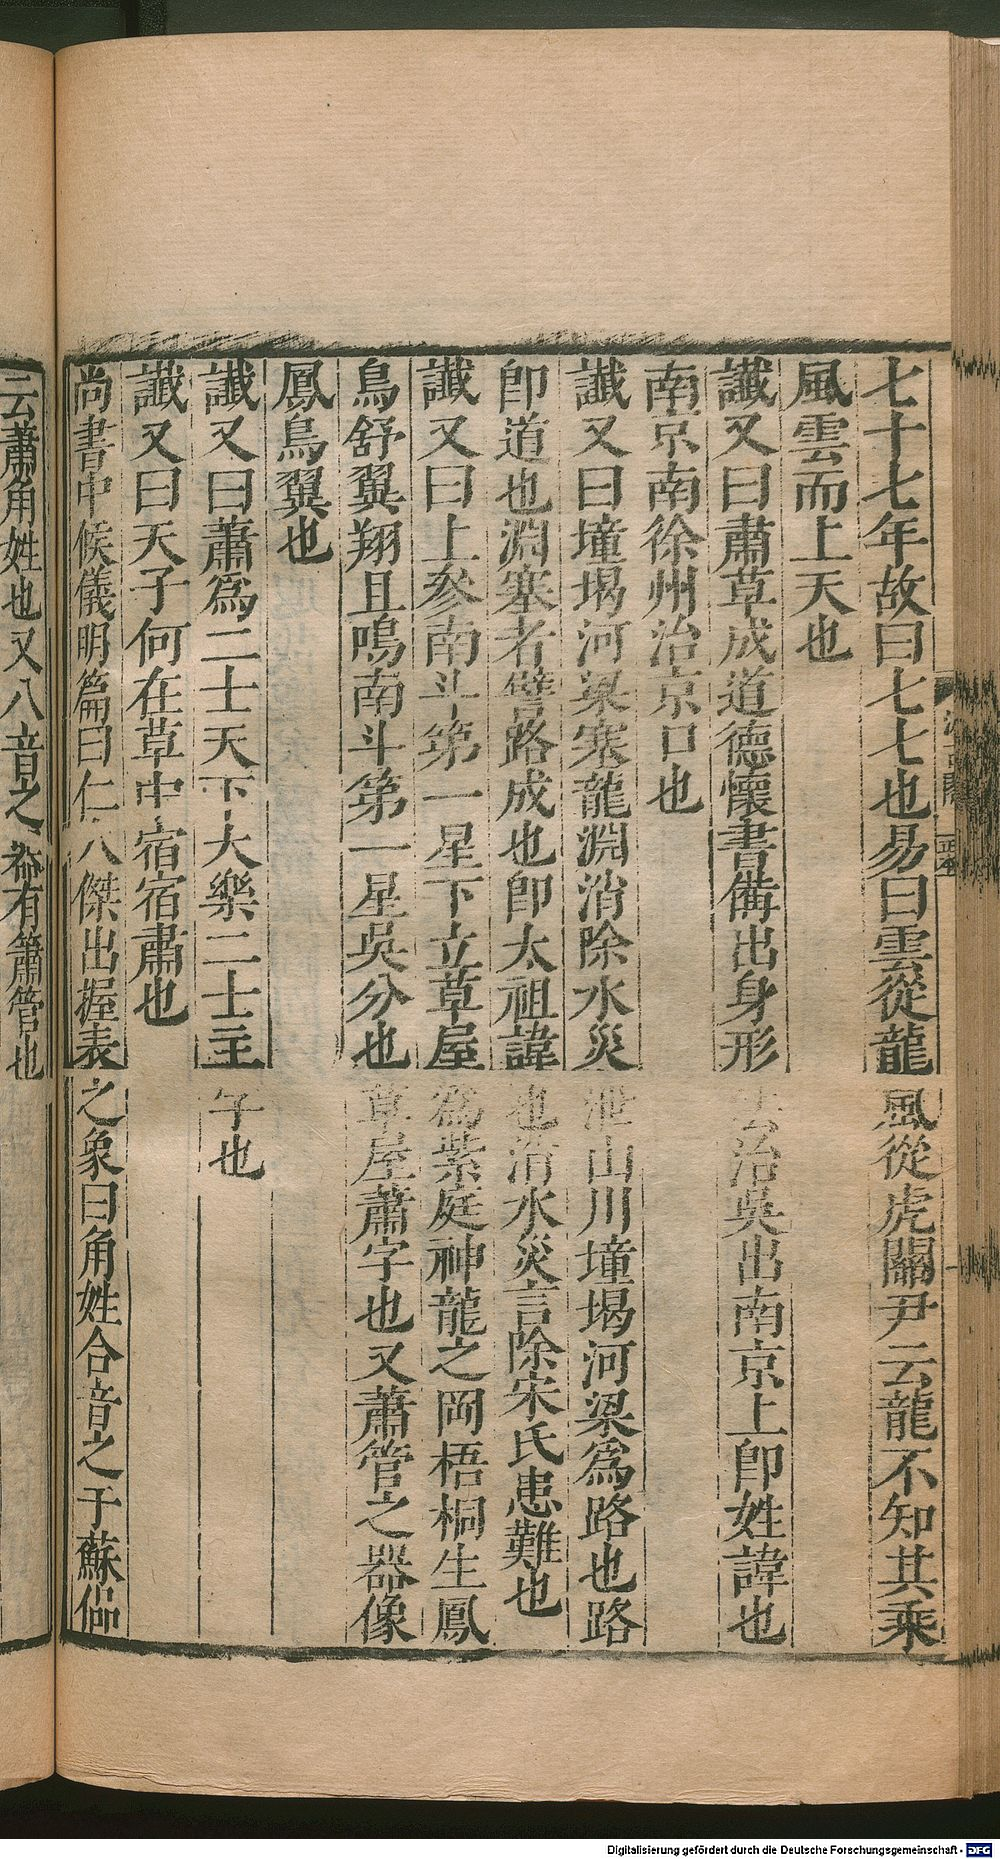 七十七年故曰七七也易曰雲從龍風從虎關尹云龍不知其乘
風雲而上天也
讖又曰肅草成道德懷書備出身形治吳出南京上卽姓諱也
南京南徐州治京口也
讖又曰墥堨河梁塞龍淵消除水災泄山川墥堨河梁爲路也路
卽道也淵塞者譬路成也卽太祖諱也消水災言除宋氏患難也
讖又曰上參南斗第一星下立草屋爲紫庭神龍之岡梧桐生鳳
鳥舒翼翔且鳴南斗第一星吳分也草屋蕭字也又蕭管之器像
鳳鳥翼也
讖又曰蕭爲二士天下大樂二士主字也
讖又曰天子何在草中宿宿肅也
尚書中候儀明篇曰仁人傑出握表之象曰角姓合音之于蘇偘
云蕭角姓也又八音之器有簫管也
Digitalisierung gefördert durch die Deutsche Forschungsgemeinschaft - DFG